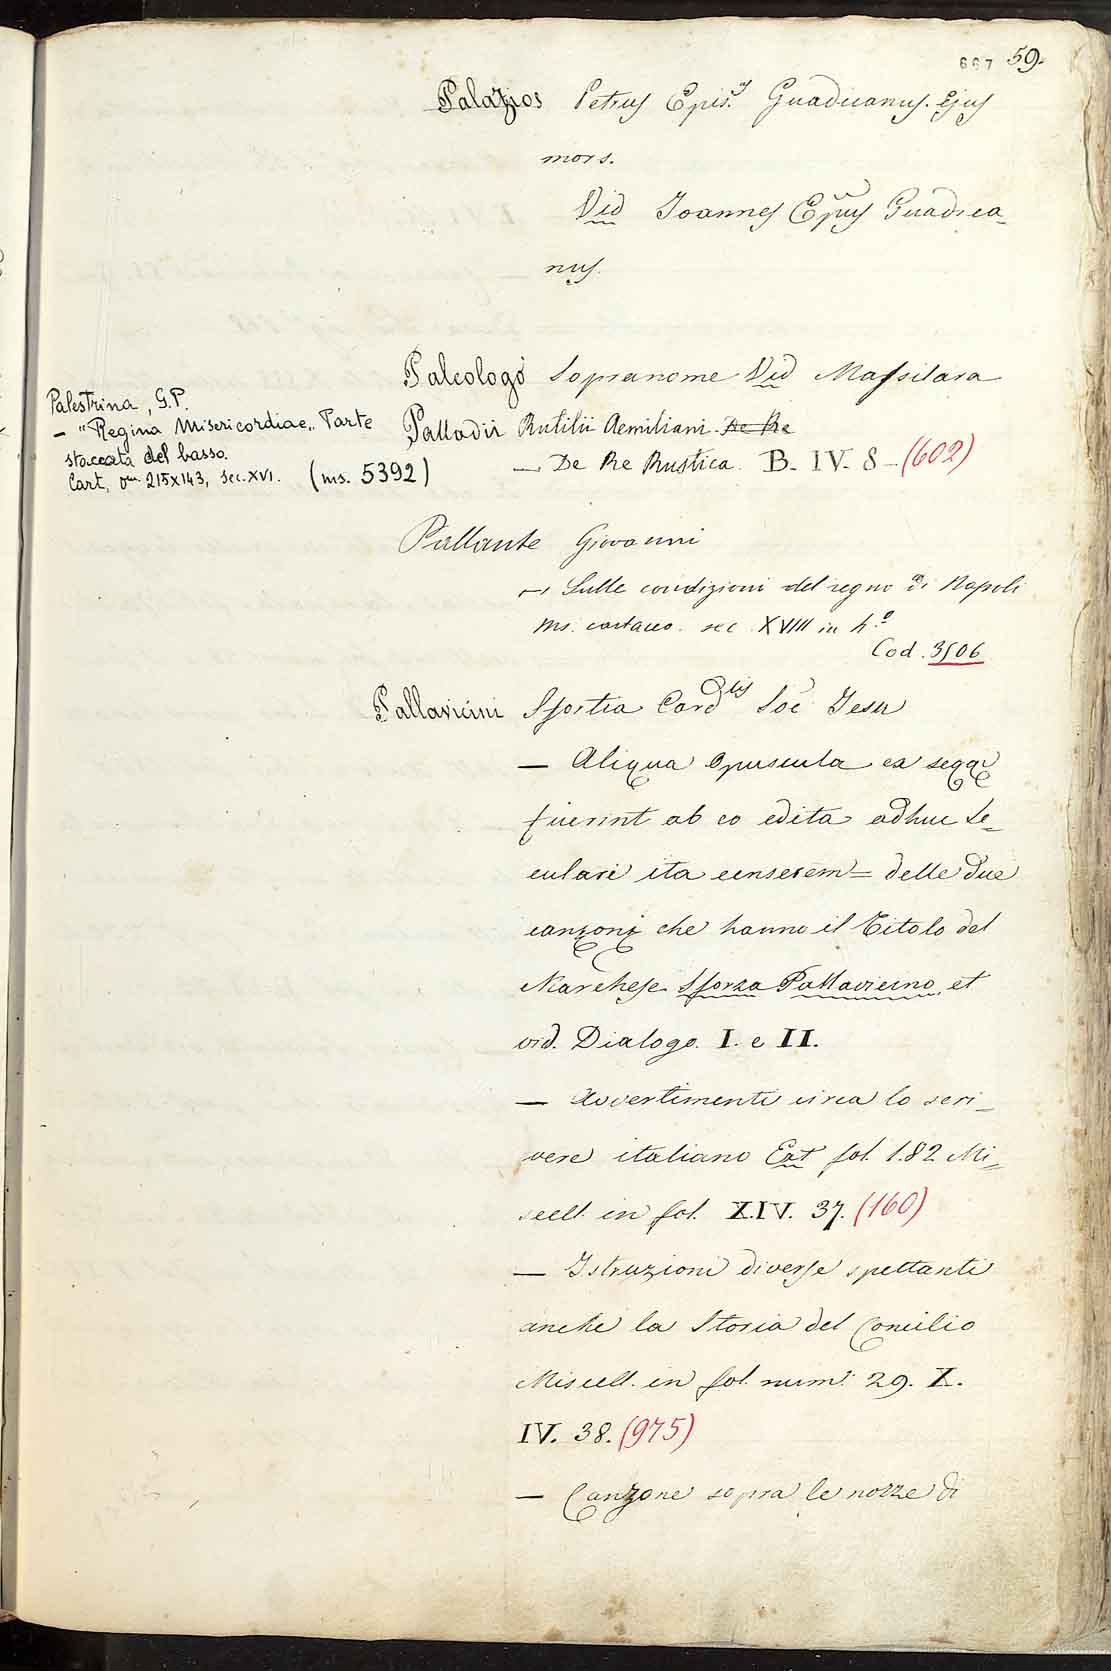 667 59.
Palazios Petrus Epis.s Guadicanus. Ejus
mors.
Vid Joannes Epus Guadica-
nus.
Paleologo Sopranome Vid Massilara
Palestrina, G.P.
- "Regina Misericordiae,, Parte
staccata del basso.
Cart, mm. 215x143, sec. XVI. (ms. 5392)
Palladii Rutilii Aemiliani. De Re
— De Re Rustica. B. IV. 8 - (602)
Pallante Giovanni
— Sulle condizioni del regno di Napoli
Ms. cartaceo. sec. XVIII in 4.o
Cod. 3506
Pallavicini Sfortia Cardlis Soc Jesu
— Aliqua Opuscula ea seqq
fuerint ab eo edita adhuc Se-
culari ita censerem = delle due
canzoni che hanno il Titolo del
Marchese Sforza Pallavicino, et
vid. Dialogo. I. e II.
— Avvertimenti circa lo scri-
vere italiano Ext fol. 182 Mi-
scell. in fol. XIV. 37. (160)
— Istruzioni diverse spettanti
anche la Storia del Concilio
Miscell. in fol. num: 29. X.
IV. 38. (975)
— Canzone sopra le nozze di